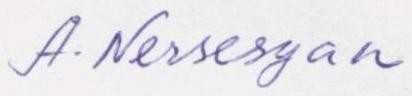 A. Nersesyan